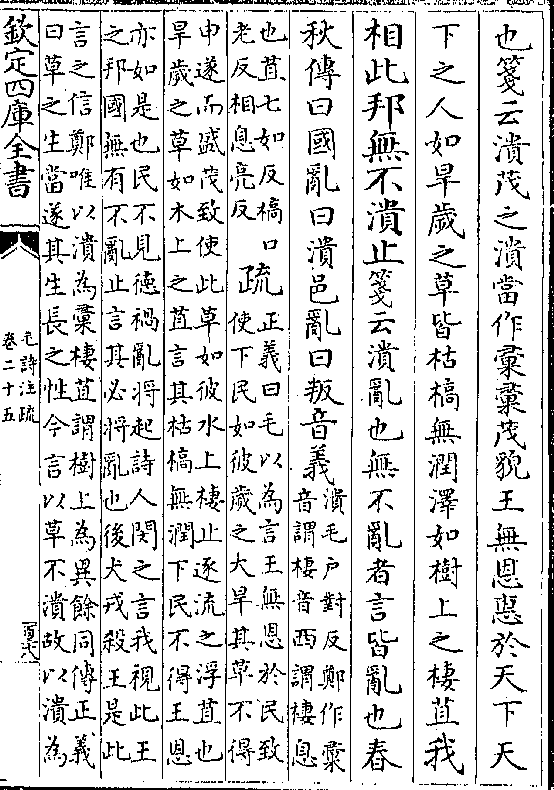 也箋云潰茂之潰當作彚彚茂貌王無恩惠於天下天
下之人如旱歲之草皆枯槁無潤澤如樹上之棲苴我
相此邦無不潰止箋云潰亂也無不亂者言皆亂也春
秋傳曰國亂曰潰邑亂曰叛音義潰毛戶對反鄭作彚
音謂棲音西謂棲息
也苴七如反槁口
老反相息亮反
疏正義曰毛以為言王無恩於民致
使下民如彼歲之大旱其草不得
申遂而盛茂致使此草如彼水上棲止逐流之浮苴也
旱歲之草如木上之苴言其枯槁無潤下民不得王恩
亦如是也民不見德禍亂將起詩人閔之言我視此王
之邦國無有不亂止言其必將亂也後犬戎殺王是此
言之信鄭唯以潰為彚棲苴謂樹上為異餘同傳正義
曰草之生當遂其生長之性今言以草不潰故以潰為
欽定四庫全書
毛詩注疏
卷二十五